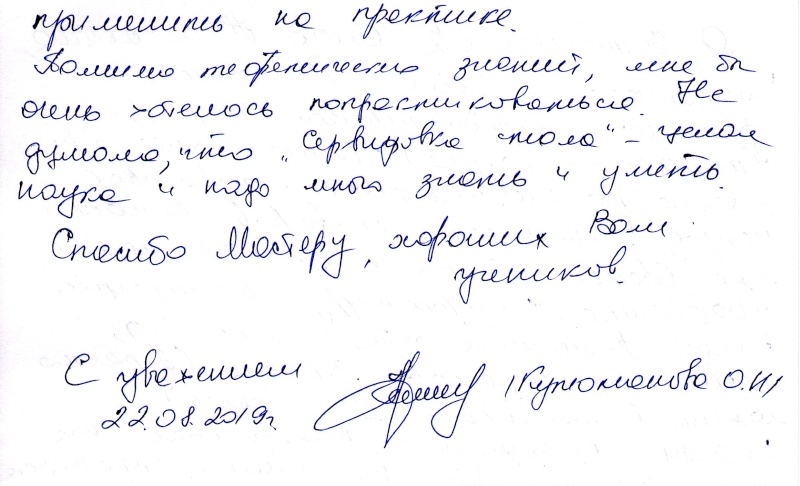 применить на практике.
Помимо теоретических знаний, мне бы
очень хотелось попрактиковаться. Не
думала, что „Сервировка стола“ – целая
наука и надо много знать и уметь.
Спасибо Мастеру, хороших Вам
учеников.
С уважением
22.08.2019г.